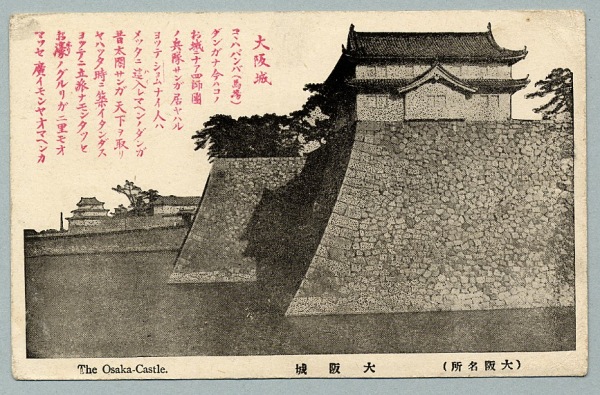 大阪城
コヽハバンバ(馬場)
ダンガナ今ハコノ
お城ニナァ四師團
ノ兵隊サンガ居ヤハル
ヨツテショムナイ人ハ
メッタニ這入レマヘンノダンガ
昔太閤サンガ天下ヲ取リ
ヤハッタ時ニ築イタンダス
ヨッテニ立派ナモンタツせ
お濠ノグルリガ二里モオ
マッセ廣イモンヤオマヘンカ
(大阪名所)
大阪城
The Osaka-Castle.